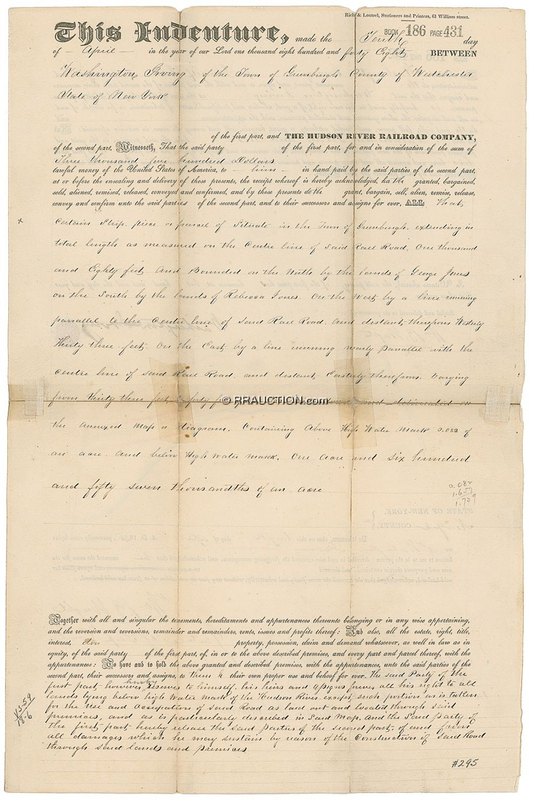 Rich & Loutrel, Stationers and Printers, 61 William street.
BOOK 186 PAGE 431
This Indenture, made the day
of April in the year of our Lord one thousand eight hundred and forty Eight BETWEEN
Washington Irving of the Town of Greenburgh County of Westchester
State of New York
of the first part, and THE HUDSON RIVER RAILROAD COMPANY,
of the second part, Witnesseth, That the said party of the first part, for and in consideration of the sum of
Three thousand five hundred Dollars
lawful money of the United States of America, to him in hand paid by the said parties of the second part,
at or before the ensealing and delivery of these presents, the receipt whereof is hereby acknowledged, hath granted, bargained,
sold, aliened, remised, released, conveyed and confirmed, and by these presents doth grant, bargain, sell, alien, remise, release,
convey and confirm unto the said parties of the second part, and to their successors and assigns for ever, ALL That
Certain Strip piece or parcel of Situate in the Town of Greenburgh extending in
total length as measured on the Centre line of Said Rail Road, One thousand
and Eighty feet, And Bounded on the North by the lands of George Jones
on the South by the lands of Rebecca Jones. On the West by a line running
parallel to the Center line of Said Rail Road and distant therefrom Westerly
Thirty three feet. On the East by a line running nearly parallel with the
Centre line of Said Rail Road, and distant, Easterly therefrom varying
from thirty three feet
© RRAUCTION.com
the annexed Map or diagram. Containing Above High Water Mark 0.082 of
an acre and below High water mark, One Acre and Six hundred
and fifty seven thousandths of an acre
0.082
1.657
1.739
Together with all and singular the tenements, hereditaments and appurtenances thereunto belonging or in any wise appertaining,
and the reversion and reversions, remainder and remainders, rents, issues and profits thereof: And also, all the estate, right, title,
interest, property, possession, claim and demand whatsoever, as well in law as in
equity, of the said party of the first part, of, in or to the above described premises, and every part and parcel thereof, with the
appurtenances: To have and to hold the above granted and described premises, with the appurtenances, unto the said parties of the
second part, their successors and assigns, to their own proper use and behoof for ever. The said Party of the
first part, however, reserves to himself, his heirs and Assigns forever all his right to all
lands lying below high water mark of the Hudson River except such portion as is taken
for the use and occupation of said Road as laid out and located through said
premises, and as is particularly described in Said Map, and the Said party of
the first part hereby release the Said parties of the Second part, of and from
all damages which he may sustain by reason of the Construction of Said Road
through said Lands and premises
#295